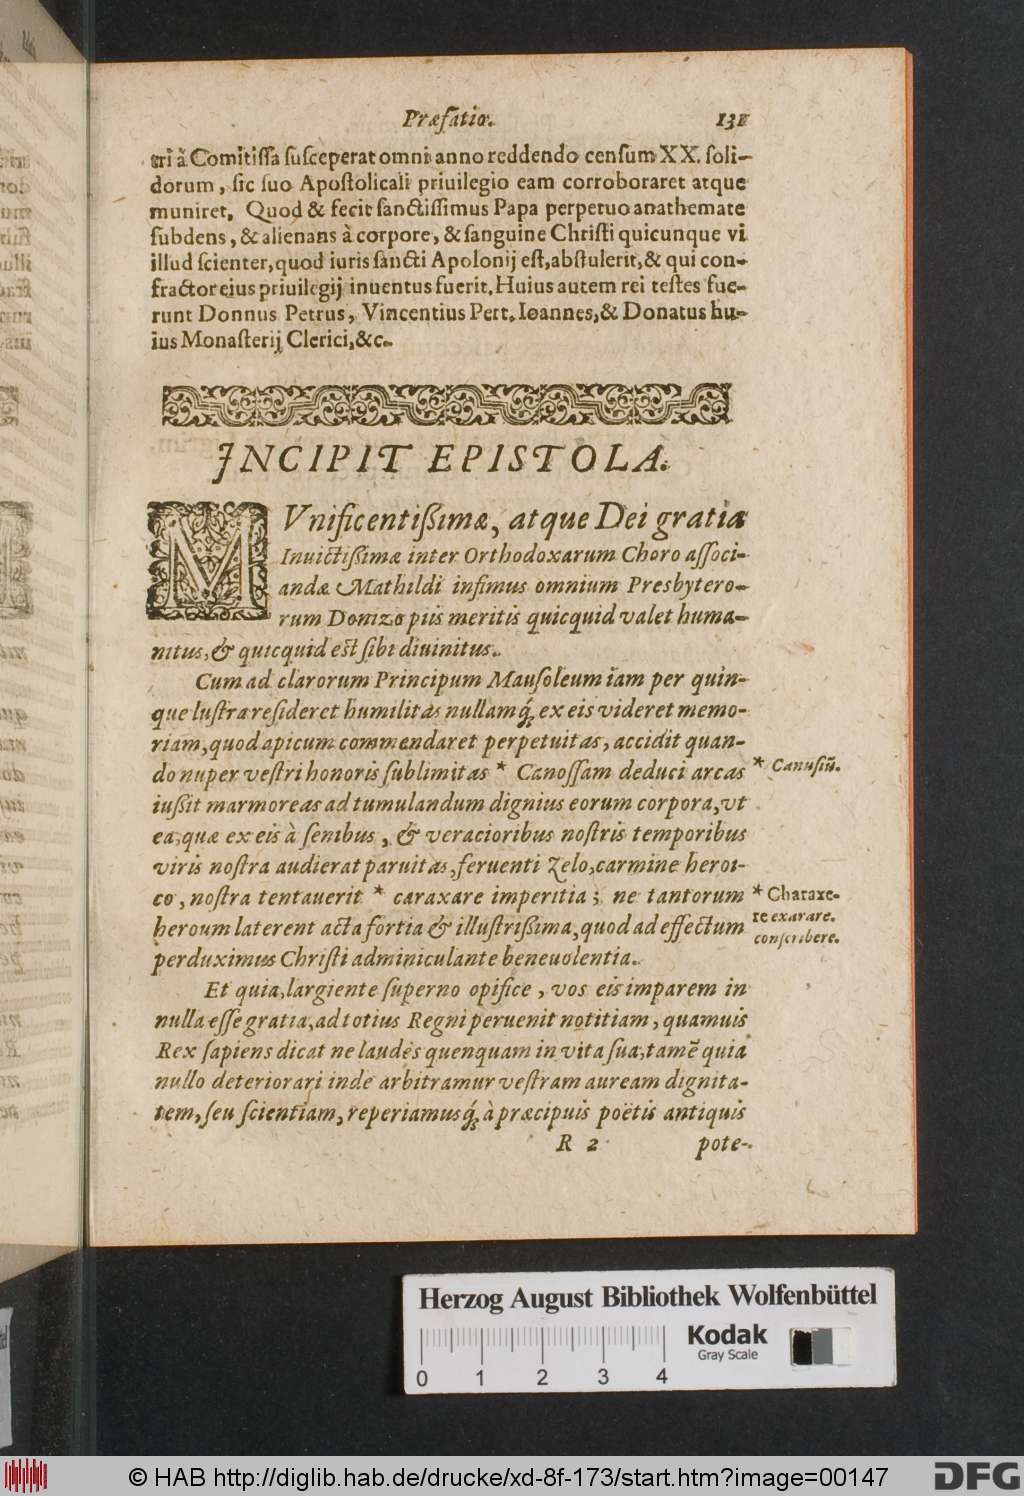 Præfatio. 131
tri à Comitissa susceperat omni anno reddendo censum XX. soli-
dorum, sic suo Apostolicali priuilegio eam corroboraret atque
muniret, Quod & fecit sanctissimus Papa perpetuo anathemate
subdens, & alienans à corpore, & sanguine Christi quicunque vi
illud scienter, quod iuris sancti Apolonij est, abstulerit, & qui con-
fractor eius priuilegij inuentus fuerit. Huius autem rei testes fue-
runt Donnus Petrus, Vincentius Pert. Ioannes, & Donatus hu-
ius Monasterij Clerici, &c.
INCIPIT EPISTOLA.
MVnificentißimæ, atque Dei gratia
Inuictißimæ inter Orthodoxarum Choro associ-
andæ Mathildi infimus omnium Presbytero-
rum Donizo piis meritis quicquid valet huma-
nitus, & quicquid est sibi diuinitus.
Cum ad clarorum Principum Mausoleum iam per quin-
que lustra resideret humilitas nullamq́; ex eis videret memo-
riam, quod apicum commendaret perpetuitas, accidit quan-
do nuper vestri honoris sublimitas * Canossam deduci arcas * Canusiũ.
iußit marmoreas ad tumulandum dignius eorum corpora, vt
ea, quæ ex eis à senibus, & veracioribus nostris temporibus
viris nostra audierat paruitas, feruenti Zelo, carmine heroi-
co, nostra tentauerit * caraxare imperitia; ne tantorum * Charaxe-
re exarare.
heroum laterent acta fortia & illustrißima, quod ad effectum conscribere.
perduximus Christi adminiculante beneuolentia.
Et quia, largiente superno opifice, vos eis imparem in
nulla esse gratia, ad totius Regni peruenit notitiam, quamuis
Rex sapiens dicat ne laudes quenquam in vita sua, tamẽ quia
nullo deteriorari inde arbitramur vestram auream dignita-
tem, seu scientiam, reperiamusq́; à præcipuis poëtis antiquis
R 2 pote-
Herzog August Bibliothek Wolfenbüttel
Kodak
Gray Scale
0 1 2 3 4
© HAB http://diglib.hab.de/drucke/xd-8f-173/start.htm?image=00147
DFG